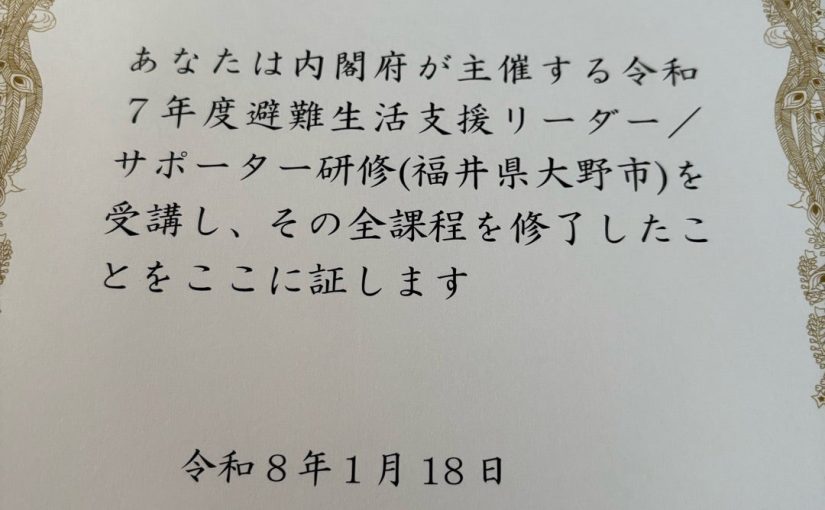 あなたは内閣府が主催する令和
７年度避難生活支援リーダー／
サポーター研修(福井県大野市)を
受講し、その全課程を修了したこ
とをここに証します
令和８年１月18日